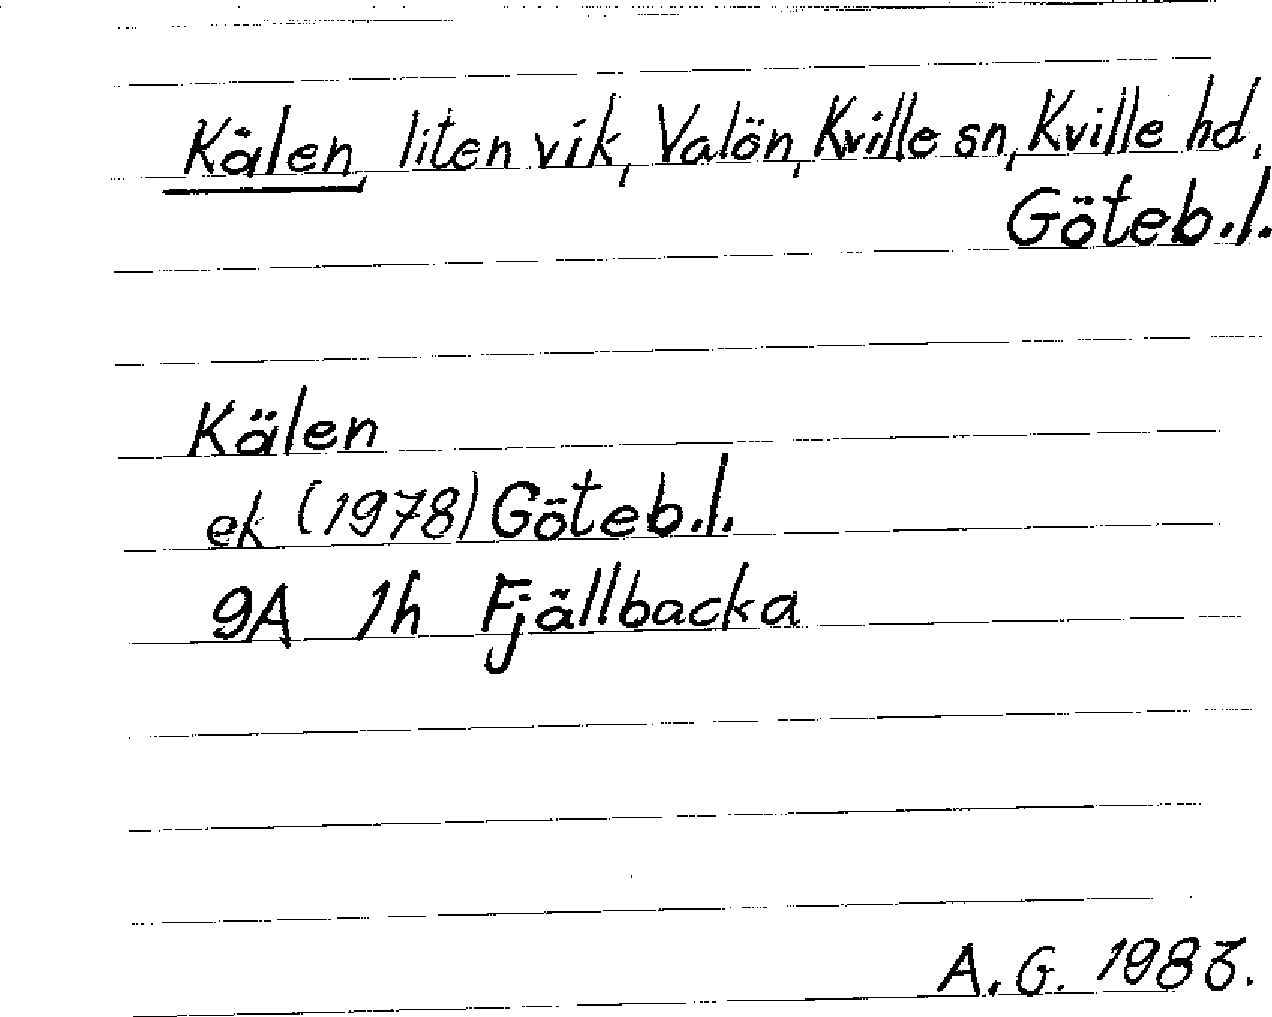 Kälen, liten vik, Valön, Kville sn, Kville hd,
Göteb.l.
Kälen
ek (1978) Göteb.l.
9A 1h Fjällbacka
A.G.